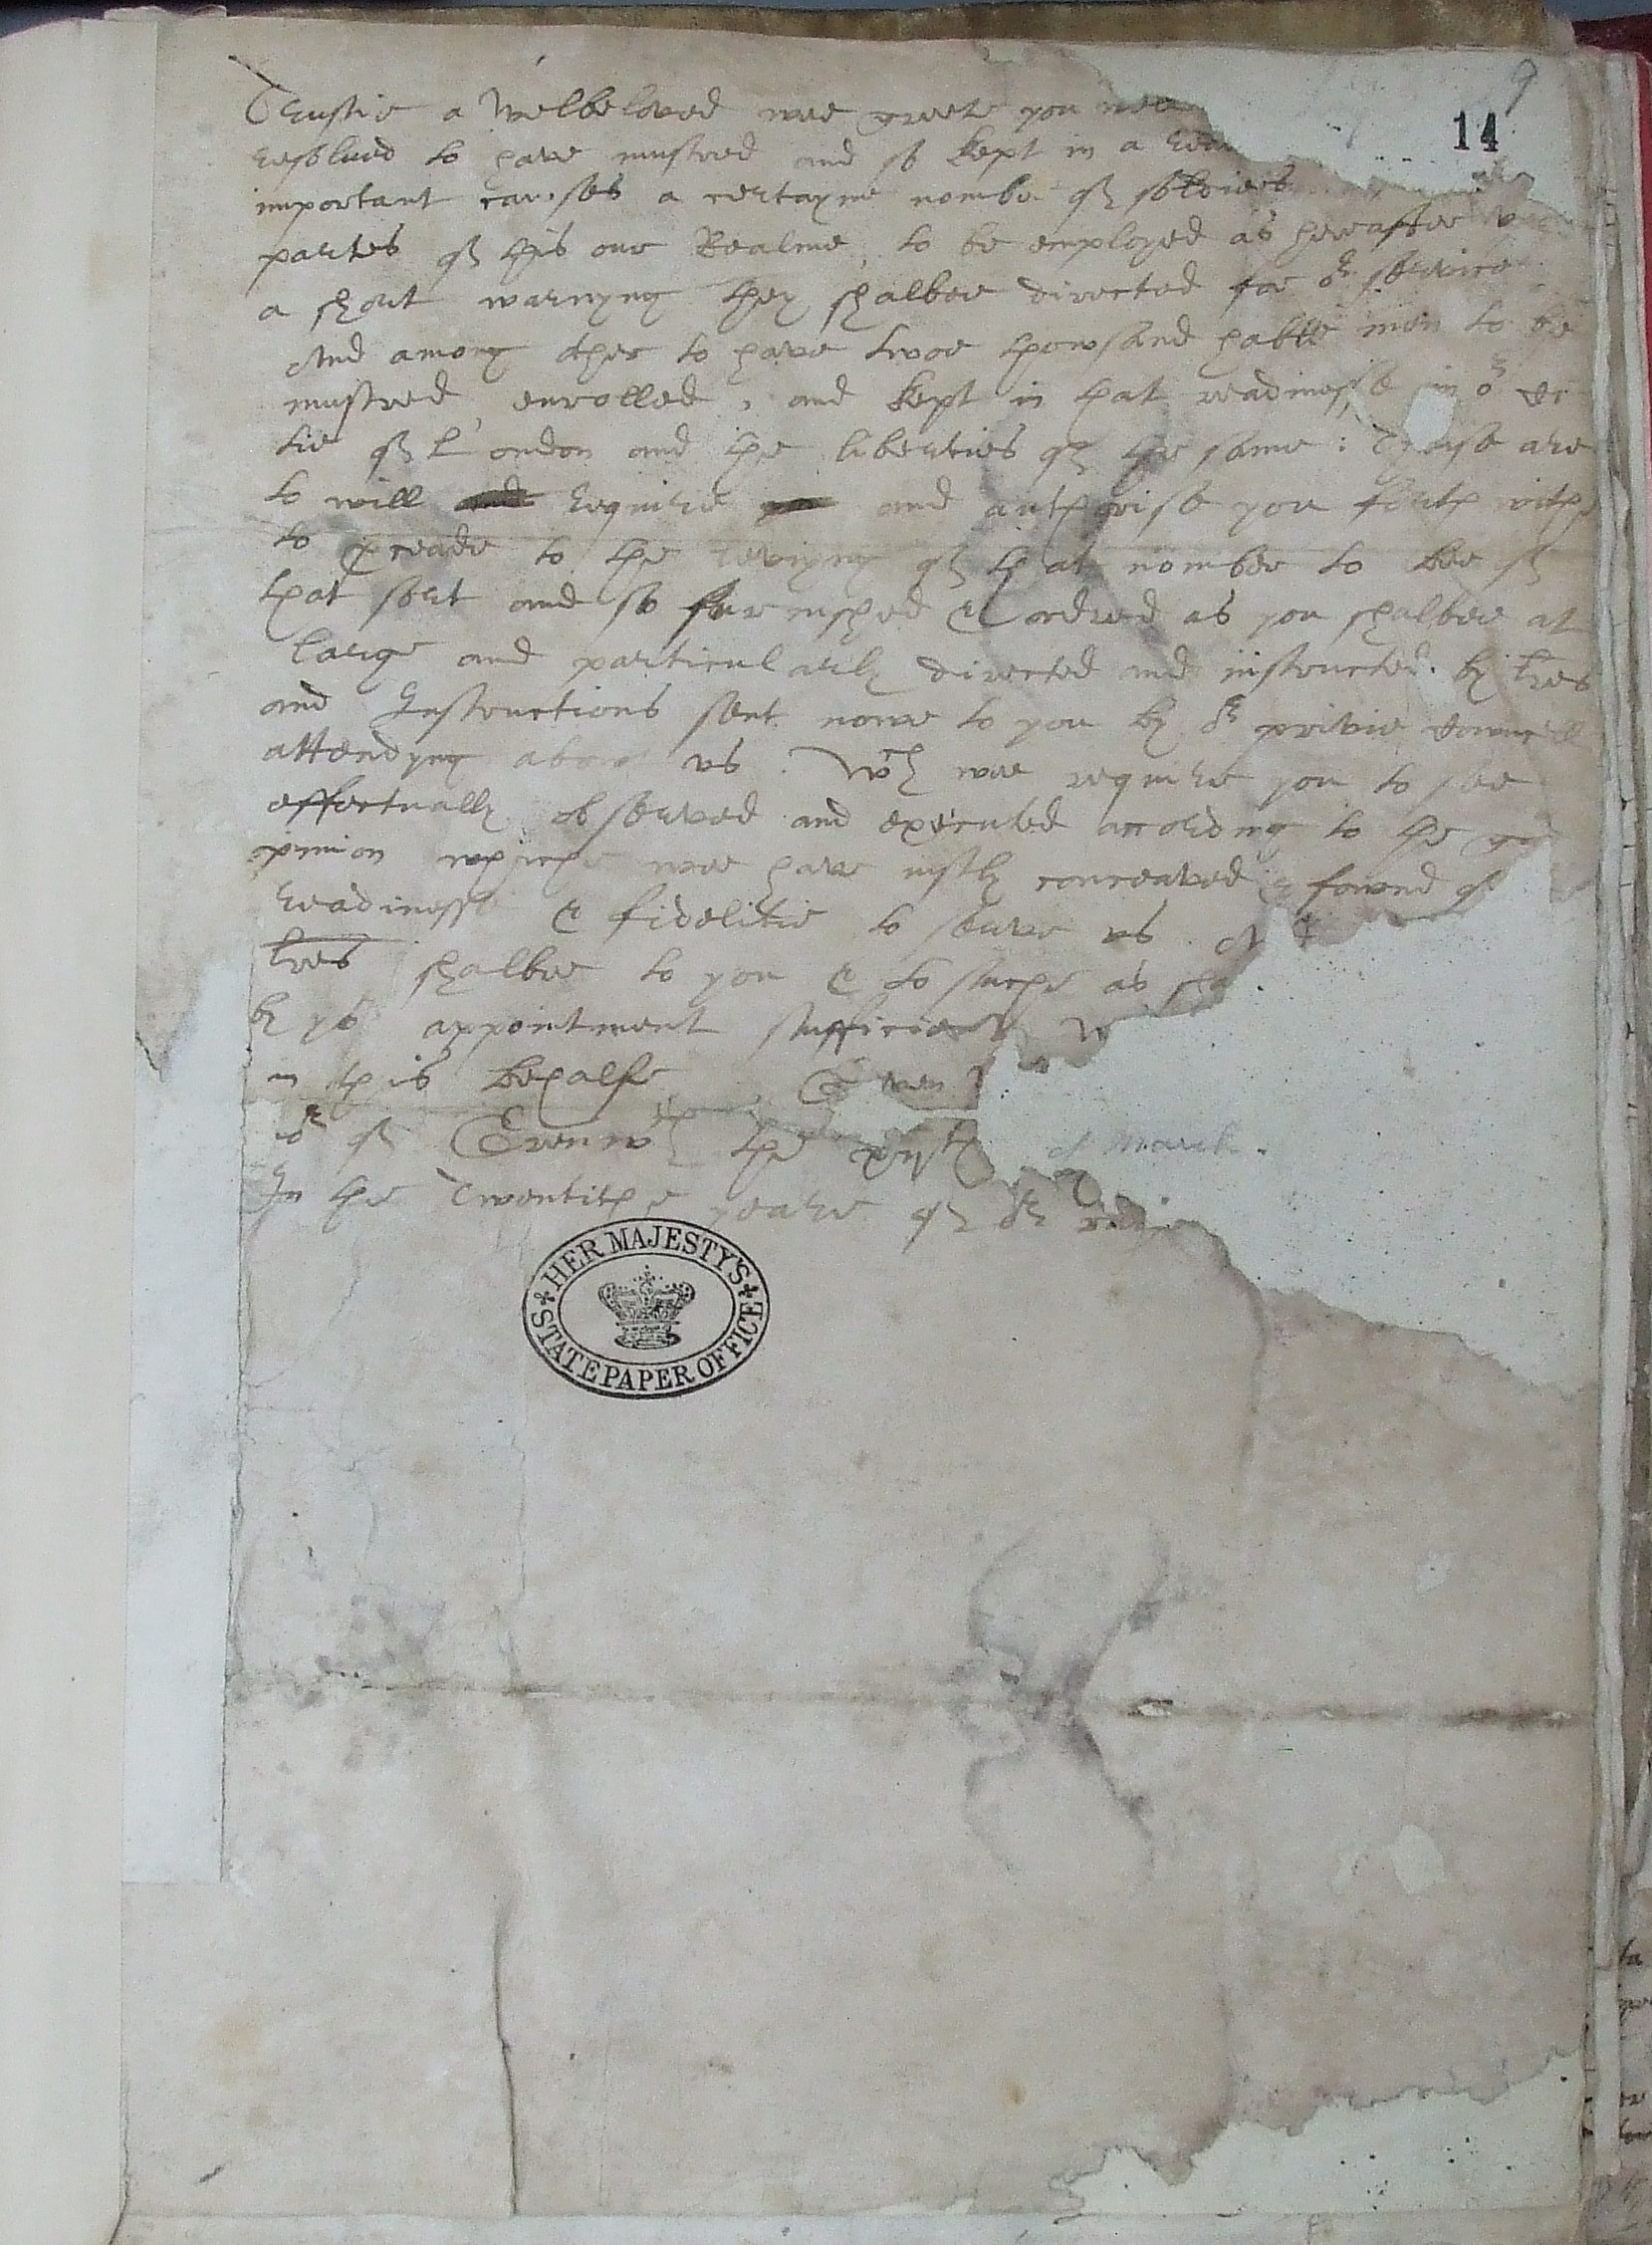 9
14
Trustie & Welbeloved wee greete you
resolved to have mustred and so kept in a
important causes a certayne nomber of soldiers
partes of this our Realme, to be employed as hereafter
a short warnyng they shalbee directed for oʳ service
And among other to have twoe thowsand hable men to be
mustred, enrolled, and kept in that readinesse in oʳ Ci
tie of London and the liberties of the same: These are
to will require and authorise you forth withe
to ꝓceade to the levying of that nomber to bee of
that sort and so furnished & ordred as you shalbee at
large and particularly directed and instructed by l̃res
and Instructions sent nowe to you by oʳ privie Counsell
attendyng about us. Wᶜʰ wee require you to see
effectually observed and executed according to the
opinion whiche wee have iustly conceaved & fownd of
readinesse & fidelitie to serve us.
l̃res shalbee to you & to suche as
by yoʳ appointment sufficient
in this behalfe Geven
oʳ of Grenwᶜʰ the of March.
In the Twentithe yeare of oʳ
HER MAJESTY'S
STATE PAPER OFFICE